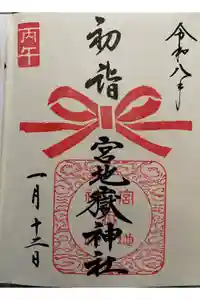 令和八年
丙午
初詣
宮地嶽神社
一月十二日